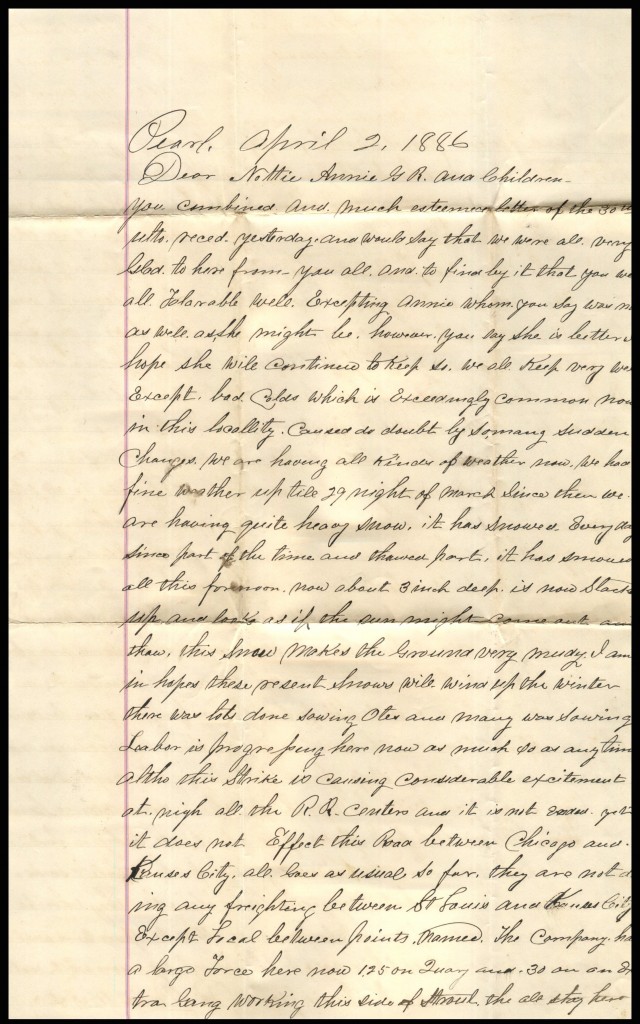 Pearl, April 2, 1886
Dear Nottie Annie G R. and Children—
you combined and much esteemed letter of the 30th
ulto. reced. yesterday. and would say that we were all very
Glad. to here from you all. and. to find by it that you we
all. Tolarable well. Excepting Annie whom. you say was n
as well. as. she might be. however. you say she is better
hope she will Continue to Keep so. we all. Keep very we
Except. bad. Colds which is Exceedingly common now
in this locallity. Caused do doubt by so many sudden
Changes. we are having all Kinds of weather now. we had
fine weather up till 29 night of march since then we
are having quite heavy snow, it has snowed Every day
since part of the time and thawed part, it has snowed
all this fornoon. now about 3 inch deep. is now Slack
up and looks as if the sun might come out and
thaw, this snow makes the Ground very mudy, I am
in hopes these resent snows will wind up the winter
there was lots done sowing Otes and many was sowing
Leabor is progressing here now as much so as any time
altho this Strike is causing considerable excitement
at. nigh all the R. R. Centers and it is not yet
it does not Effect this Roaa between Chicago and.
Kanses City. all. Goes as usual so far, they are not d
ing any freighting between St Louis and Kansas City
Except Local between points. named. The Company. ha
a large Force here now 125 on Quary and. 30 on an Ex
tra Gang working this side of the all stay here